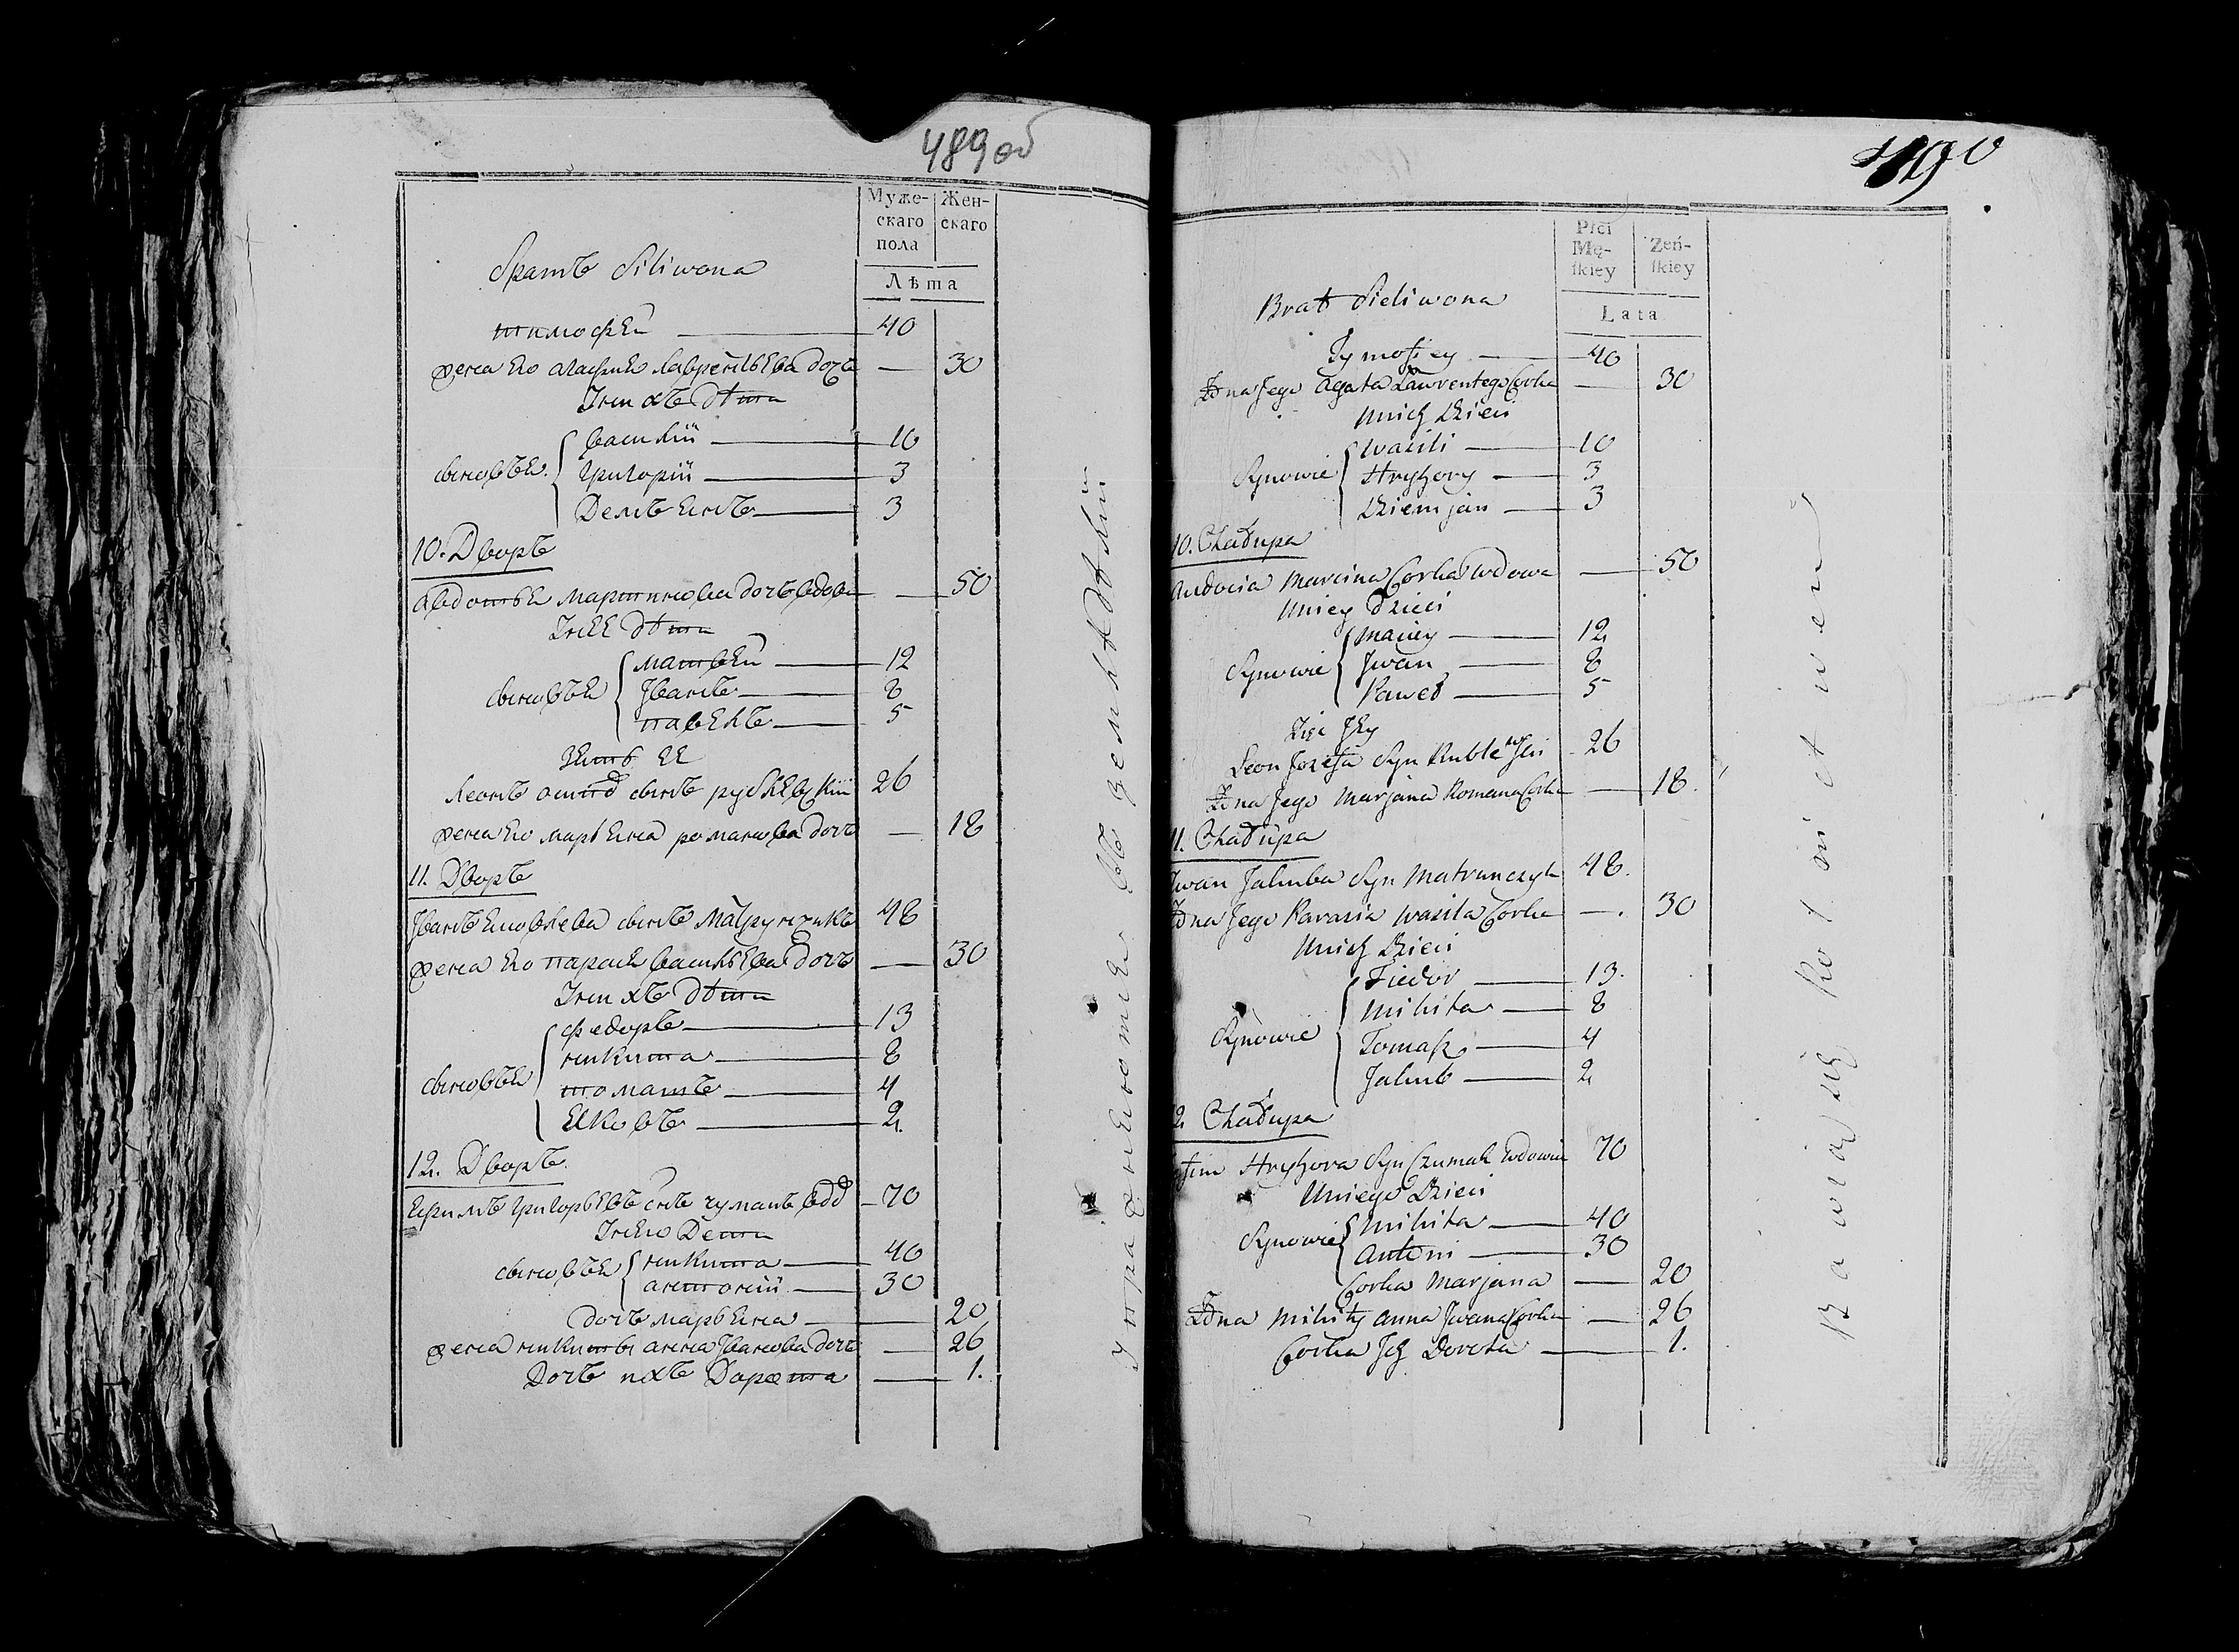 489 об
Муже-
скаго
пола
Жен-
скаго
Лѣта
братъ Siliwona
тимофей 40
жена его агафия лаврентьева дочь — 30
У них дѣти
сыновья
василій 10
григорій 3
Демьянъ 3
10. Дворъ
авдотья мартинова дочь вдова — 50
У нее дѣти
сыновья
матвей 12
Иванъ 8
павелъ 5
зять ее
леонъ осипа сынъ рублевскій 26
жена его марьяна романова дочь — 18
11. Дворъ
Иванъ яковлева сынъ матрунчикъ 48
жена его парася васильева дочь — 30
У нихъ дѣти
сыновья
федоръ 13
никита 8
томашъ 4
яковъ 2
12. Дворъ
ефимъ григорьевъ снъ чумакъ вдо 70
У него Дети
сыновья
никита 40
антоній 30
дочь марьяна — 20
жена никиты анна Иванова дочь — 26
Дочь ихъ Дорота — 1.
Упражняются въ земледѣліи
490
Płci
Mę-
ſkiey
Zeń-
ſkiey
Lata
Brat Sieliwona
Tymofiey — 40
Żona Jego Agata Ławrentego Corka — 30
Unich Dzieci
Synowie
Wasili — 10
Hryhory — 3
Dziemjan — 3
10. Chałupa
Audocia Marcina Corka Wdowa — 50
Uniey Dzieci
Synowie
Maciey — 12
Jwan — 8
Paweł — 5
Zięć Jey
Leon Jozefa Syn Rublewski 26
Żona Jego Marjana Romana Corka — 18.
11. Chałupa
Jwan Jakuba Syn Matrunczyk 48.
Żona Jego Parasia Wasila Corka — 30
Unich Dzieci
Synowie
Fiedor — 13.
Mikita — 8
Tomasz — 4
Jakub — 2
12. Chałupa
Hryhora Syn Czumak Wdowiec 70
Uniego Dzieci
Synowie
Mikita — 40
Antoni — 30
Corka Marjana — 20
Żona Mikity Anna Jwana Corka — 26
Corka Jch Dorota — 1.
Bawią się Rolnictwem